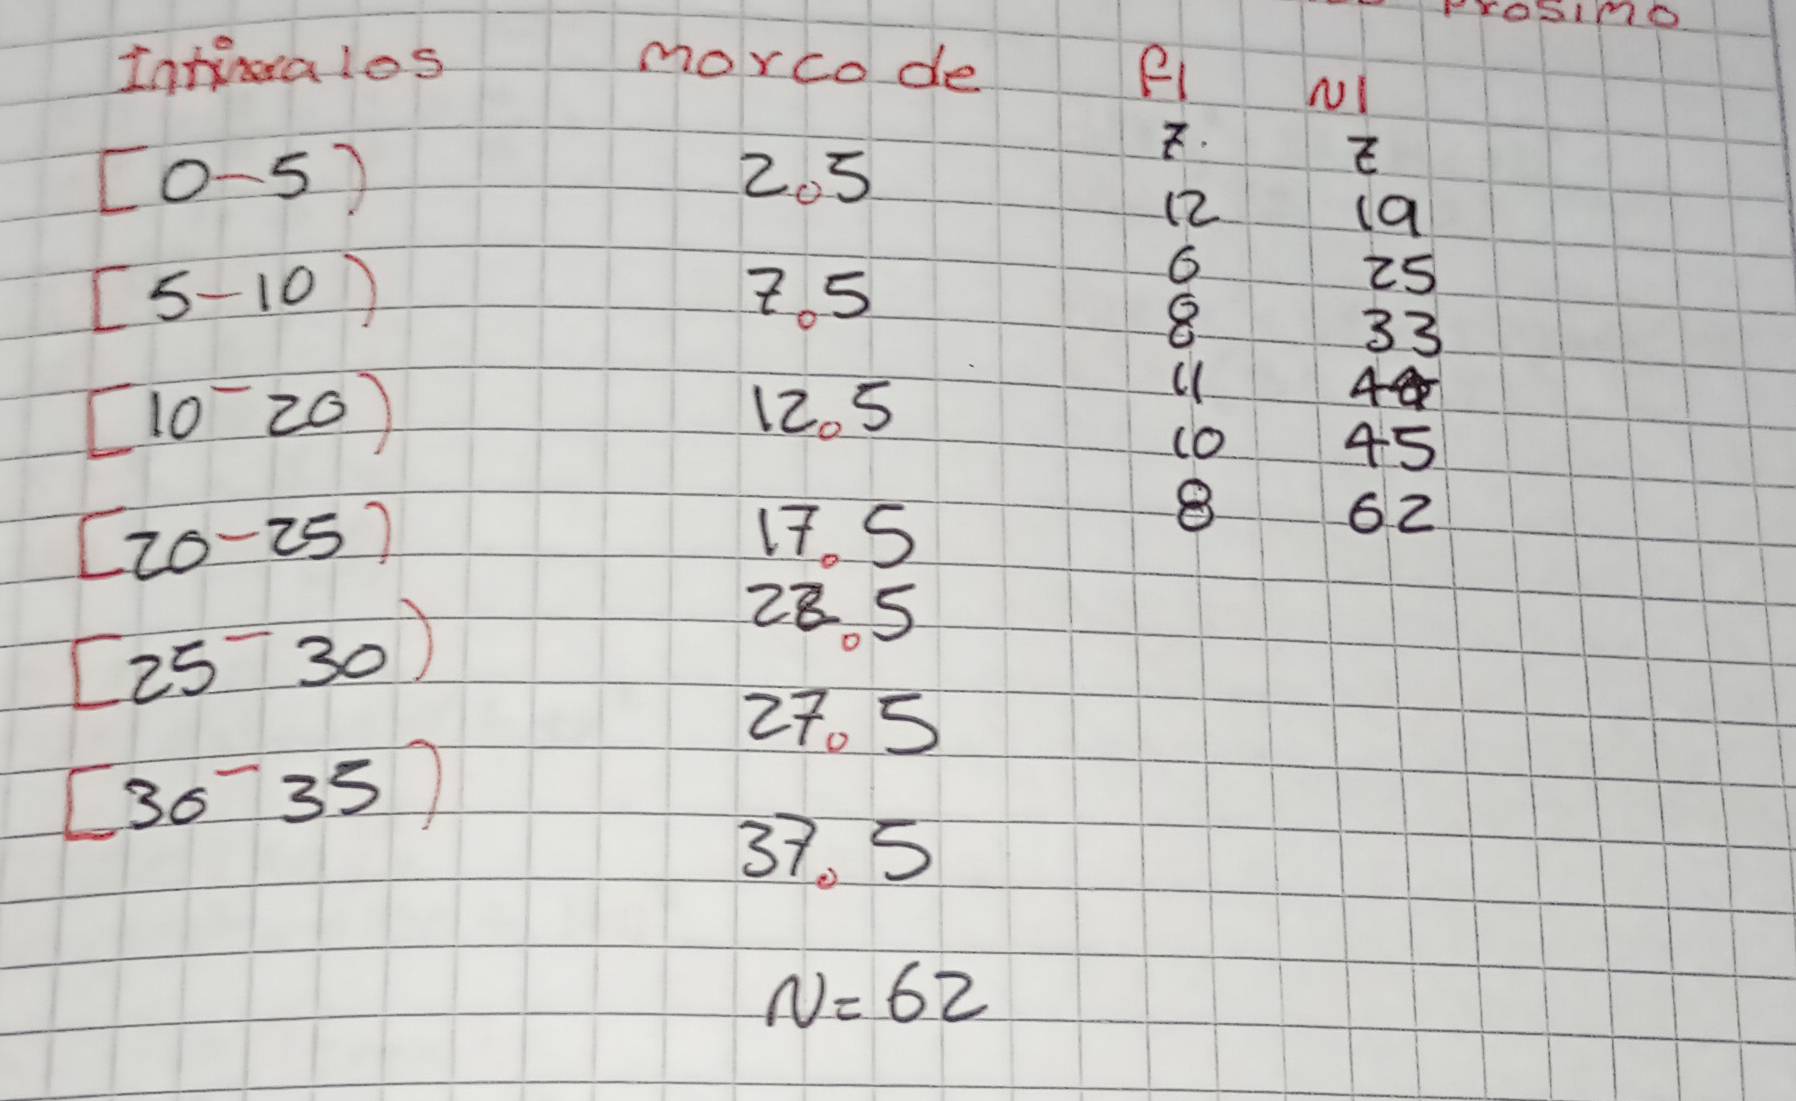 Prosimo
Intervalos marca de f1 N1
[0-5) 2.5 7. 7
12 19
[5-10) 7.5 6 25
8 33
[10-20) 12.5 11 44
10 45
[20-25) 17.5 8 62
22.5
[25-30)
27.5
[30-35)
37.5
N=62